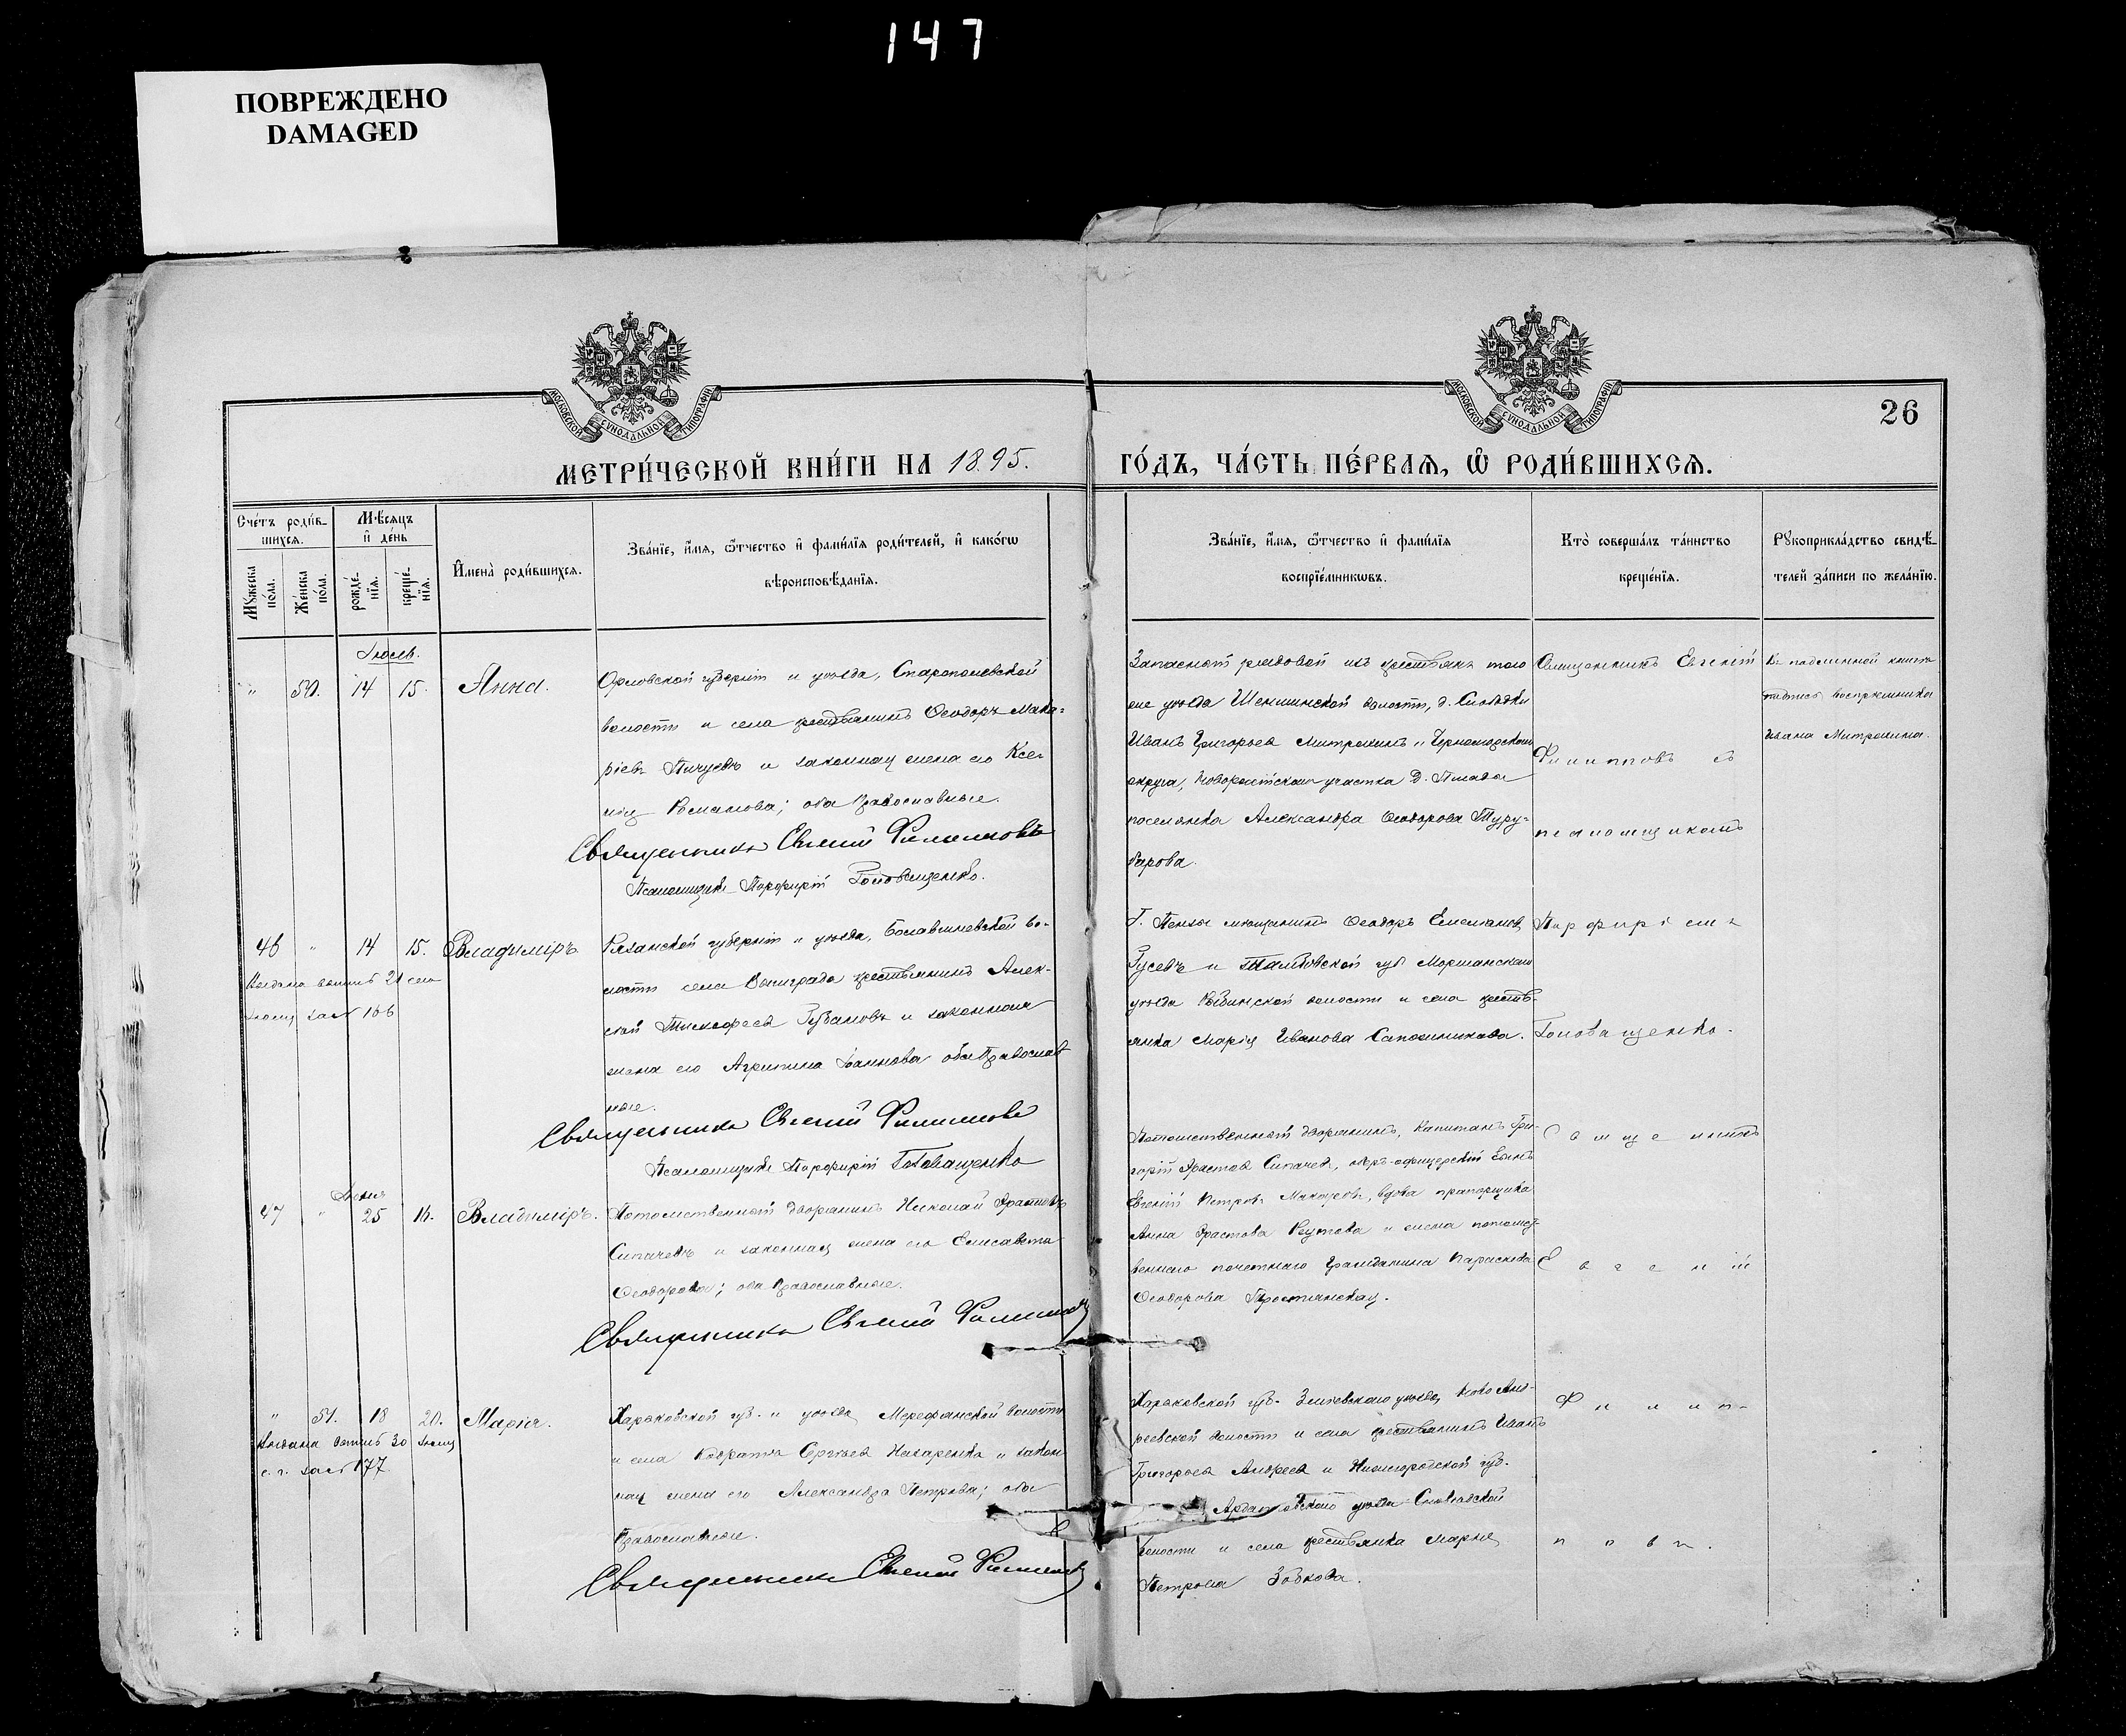 147
ПОВРЕЖДЕНО
DAMAGED
МОСКОВСКОЙ СѴНОДАЛЬНОЙ ТИПОГРАФІИ
МОСКОВСКОЙ СѴНОДАЛЬНОЙ ТИПОГРАФІИ
26
МЕТРИ́ЧЕСКОЙ КНИ́ГИ НА 1895.
ГО́ДЪ, ЧА́СТЬ ПЕ́РВАѦ, Ѡ҆ РОДИ́ВШИХСѦ.
Сче́тъ роди́в-
шихсѧ.
Мꙋ́жеска по́ла.
Же́нска по́ла.
Мѣ́сѧцъ
и҆ де́нь
рожде́-
нїѧ.
креще́-
нїѧ.
И҆мена̀ роди́вшихсѧ.
Зва́нїе, и҆́мѧ, ѻ҆́тчество и҆ фами́лїѧ роди́телей, и҆ како́гѡ
вѣроисповѣ́данїѧ.
Зва́нїе, и҆́мѧ, ѻ҆́тчество и҆ фами́лїѧ
воспрїе́мникѡвъ.
Кто̀ соверша́лъ та́инство
креще́нїѧ.
Рꙋкоприкла́дство свидѣ́-
телей за́писи по жела́нїю.
Іюль.
" 50. 14 15. Анна.
Орловской губерніи и уѣзда, Старопольской
волости и села крестьянинъ Ѳеодоръ Мака-
ріевъ Пичуевъ и законная жена его Ксе-
нія Романова; оба Православные.
Священникъ Евгеній Филипповъ
Псаломщикъ Порфирій Головащенко.
Запасной рядовой изъ крестьянъ того
же уѣзда Шеншинской волости, д. Слободки
Иванъ Григорьевъ Митрохинъ и Черноморскаго
округа, Новороссійскаго участка д. Пшада
поселянка Александра Ѳеодорова Туру-
барова.
Священникъ Евгеній
Филипповъ съ
псаломщикомъ
Къ подлинной книгѣ
подпись воспріемника
Ивана Митрохина.
46 " 14 15. Владиміръ
Выдана выпись 21 сего
Іюля за № 166
Рязанской губерніи и уѣзда, Бо
лости села крестьянинъ Алек-
сѣй Губановъ и законная
жена его Агрипина Іоаннова оба Православ
ные.
Священникъ Евгеній Филипповъ
Псаломщикъ Порфирій Головащенко
Г. Пензы мѣщанинъ Ѳеодоръ Емельяновъ
Гусевъ и Тамбовской губ. Моршанскаго
уѣзда Рыбинской волости и села кресть-
янка Марія Иванова Сапожникова.
Порфиріемъ
Головащенко.
Іюня
47 " 25 16. Владиміръ.
Потомственный дворянинъ Николай Эрастовъ
Сипачевъ и законная жена его Елисавета
Ѳеодорова; оба Православные.
Священникъ Евгеній Филипповъ
Потомственный дворянинъ, Капитанъ Гри-
горій Эрастовъ Сипачевъ, оберъ-офицерскій сынъ
Евгеній Петровъ Макаровъ, вдова прапорщика
Анна Эрастова Реутова и жена потомст-
веннаго почетнаго гражданина Параскева
Ѳеодорова Тростянская.
Священникъ
Евгеній
" 51. 18 20. Марія.
Выдана выпись 30 Іюля
с. г. за № 177.
Харьковской губ. и уѣзда, Мерефянской волости
и села Кодратъ Сергѣевъ Назаренко и закон
ная жена его Александра Петрова; оба
Православные.
Священникъ Евгеній Филипповъ
Харьковской губ. Зміевскаго уѣзда, Ново Анд-
реевской волости и села крестьянинъ Иванъ
Григорьевъ Андреевъ и Нижегородской губ.
Ардатовскаго уѣзда
волости и села крестьянка Марья
Петрова Зобкова.
Филип-
повъ.